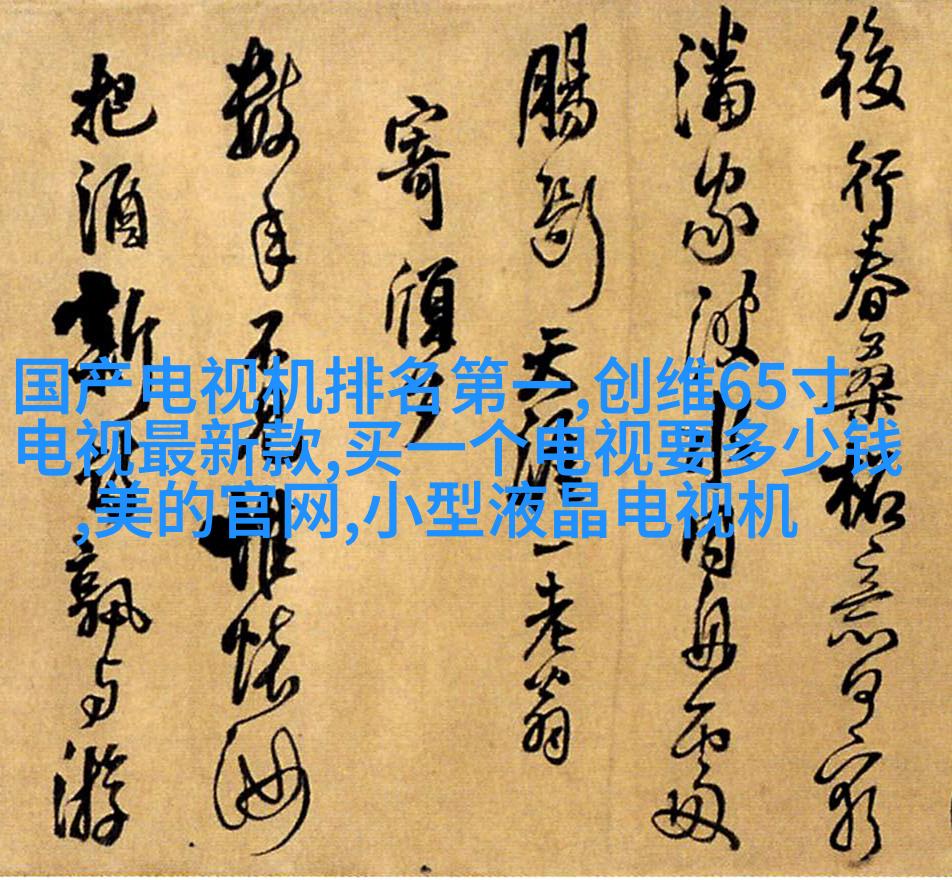 後行春桑柘意何窮
潘家
腸斷天涯一老翁
寄
數年不惟懷汝
把酒新孰与游
国产电视机排名第一,创维65寸
电视最新款,买一个电视要多少钱
,美的官网,小型液晶电视机